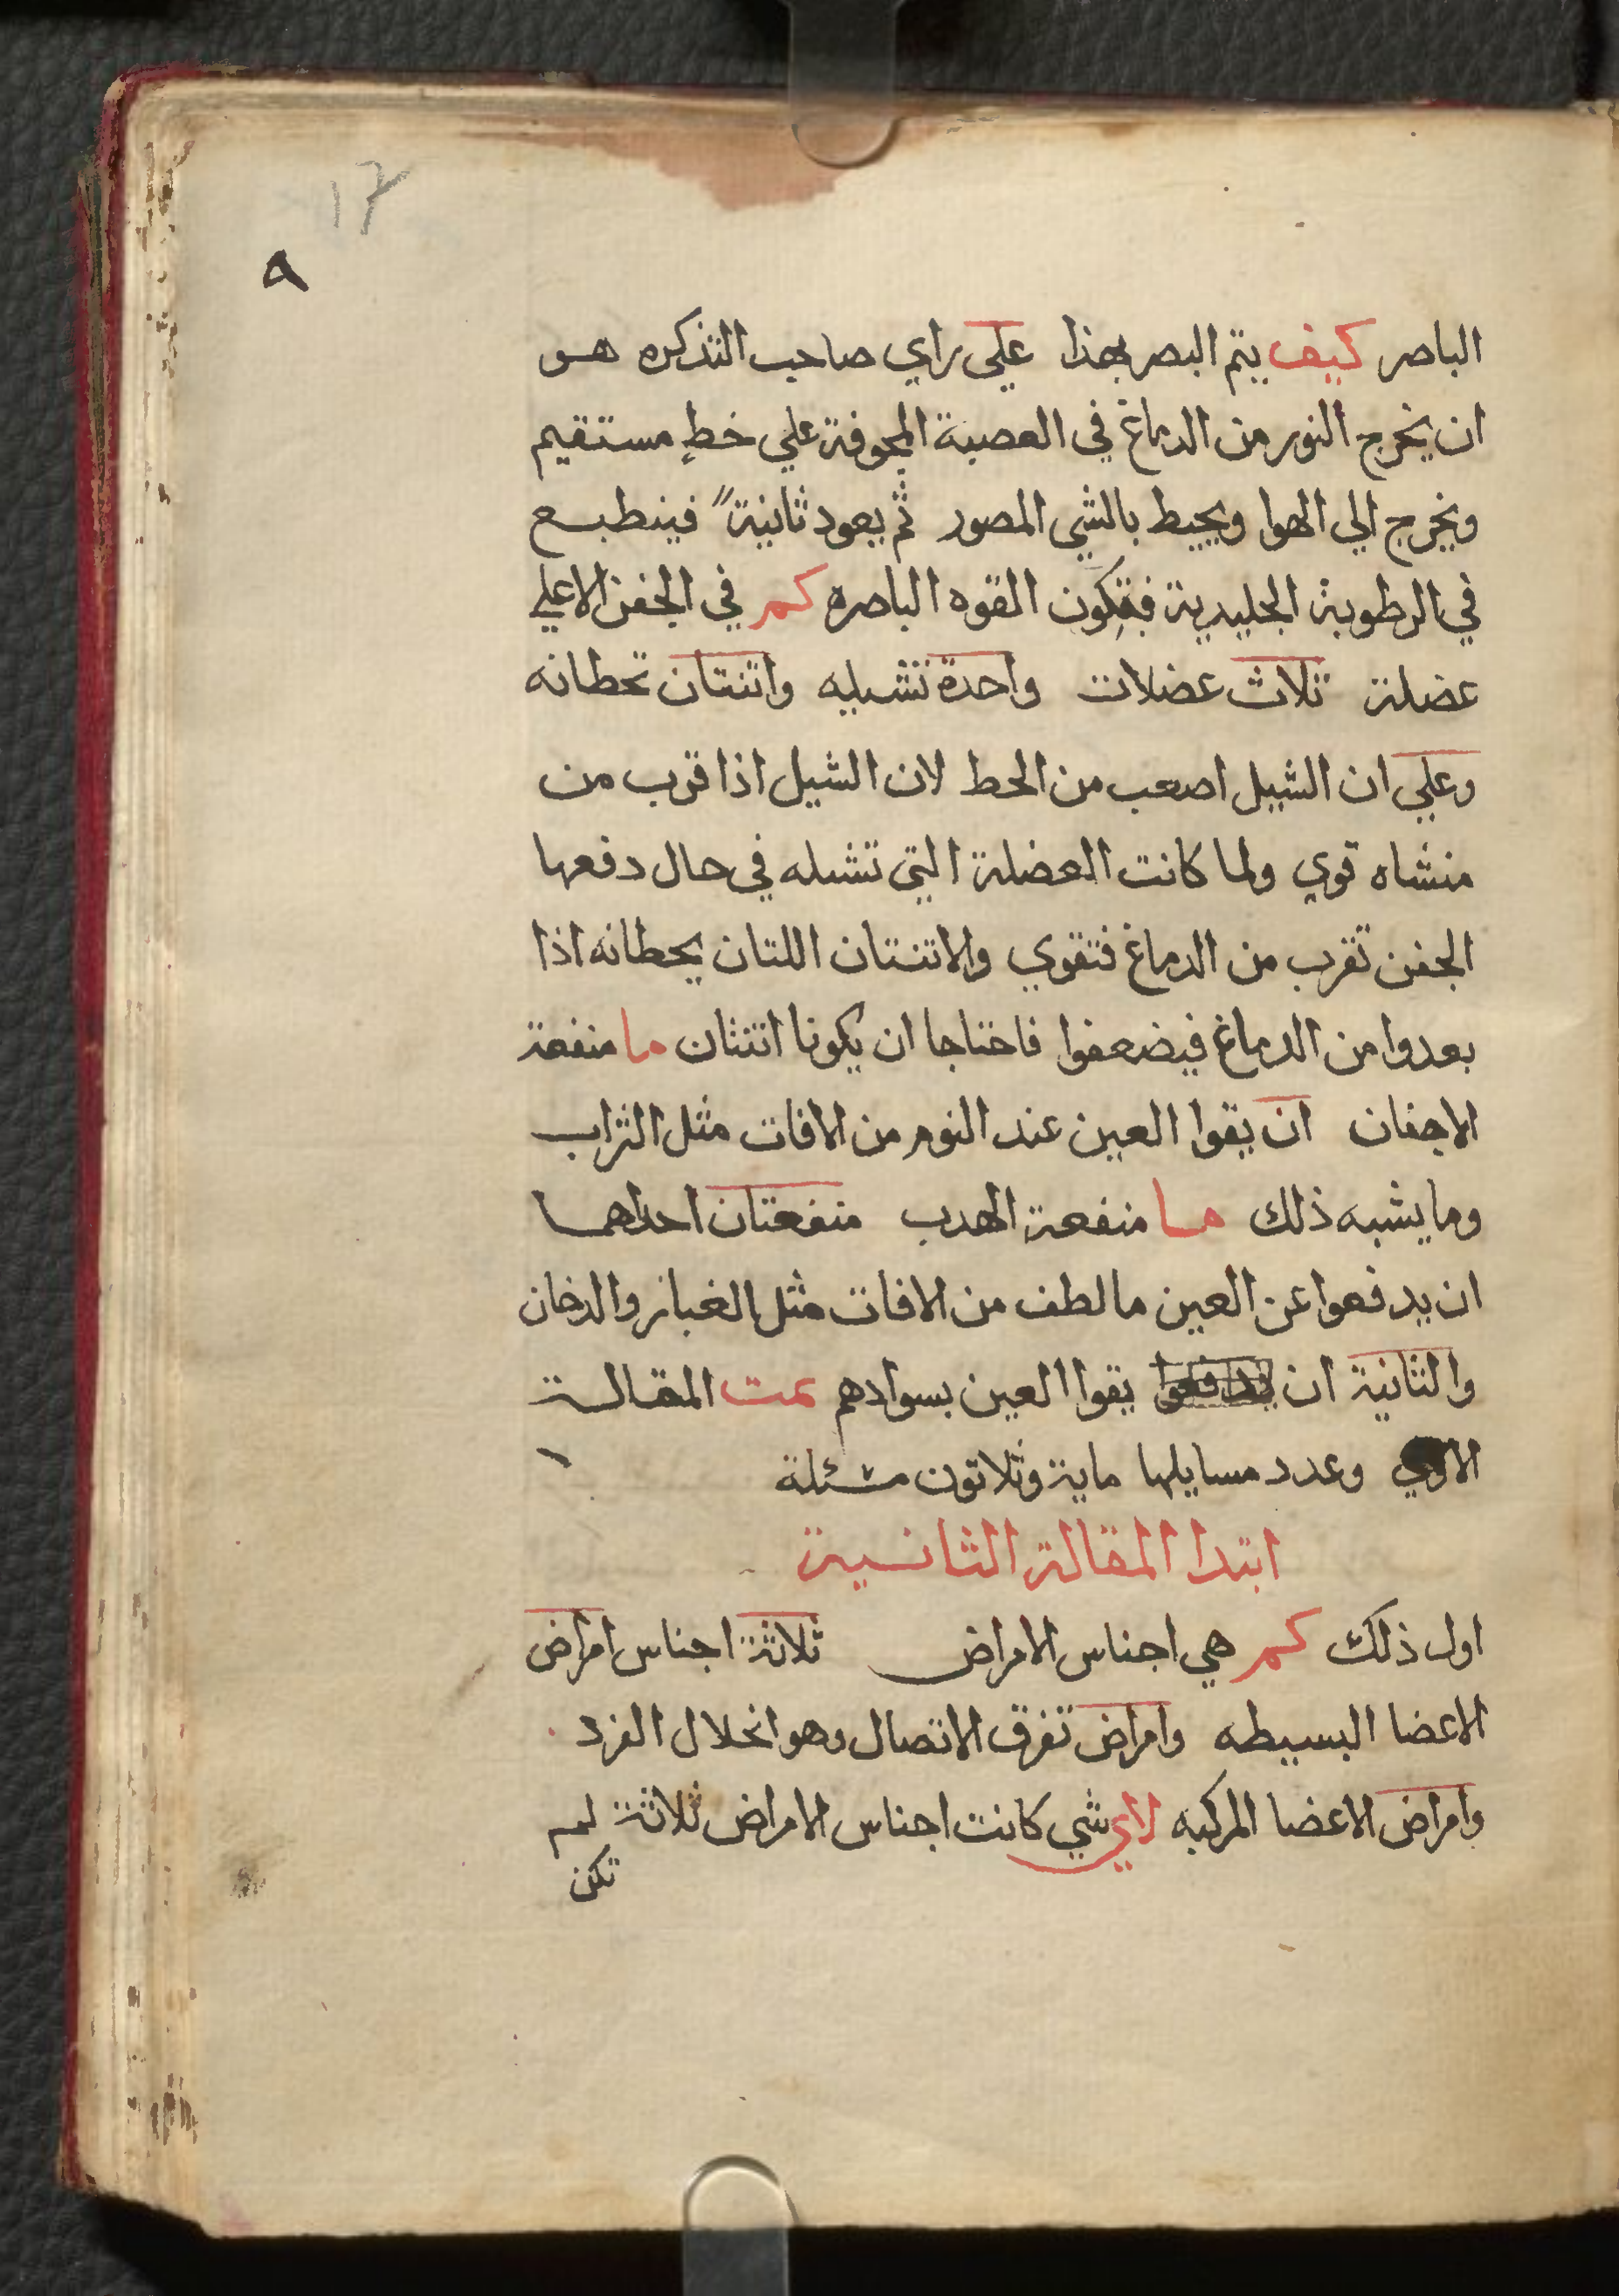 ١٣
٩
الباصر كيف يتم البصر بهذا على راي صاحب التذكره هو
ان يخرج النور من الدماغ في العصبة المجوفة علي خط مستقيم
ويخرج الي الهوا ويحيط بالشي المصور ثم يعود ثانية فينطبع
في الرطوبة الجليدية فتكون القوه الباصره كم في الجفن الاعلي
عضلة ثلاث عضلات واحدة تشيله واتنتان تحطانه
وعلي ان الشيل اصعب من الحط لان الشيل اذا قرب من
منشاه قوي ولما كانت العضلة التي تشيله في حال دفعها
الجفن تقرب من الدماغ فتقوي والاتنتان اللتان يحطانه اذا
بعدوا من الدماغ فيضعفوا فاحتاجا ان يكونا اتنتان ما منفعة
الاجفان ان يقوا العين عند النوم من الافات مثل التراب
وما يشبه ذلك ما منفعة الهدب منفعتان احداهما
ان يدفعوا عن العين ما لطف من الافات مثل الغبار والدخان
والثانية ان يدفعوا يقوا العين بسوادهم تمت المقالة
الاولي وعدد مسايلها ماية وثلاثون مسئلة
ابتدا المقالة الثانية
اول ذلك كم هي اجناس الامراض ثلاثة اجناس امراض
الاعضا البسيطه وامراض تفرق الاتصال وهو انحلال الفرد
وامراض الاعضا المركبه لاي شي كانت اجناس الامراض ثلاثة لم
تكن